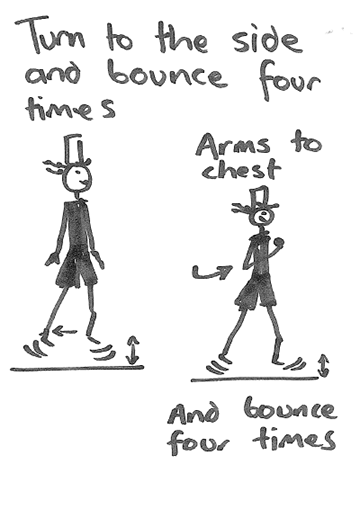 Turn to the side
and bounce four
times
Arms to
chest
And bounce
four times